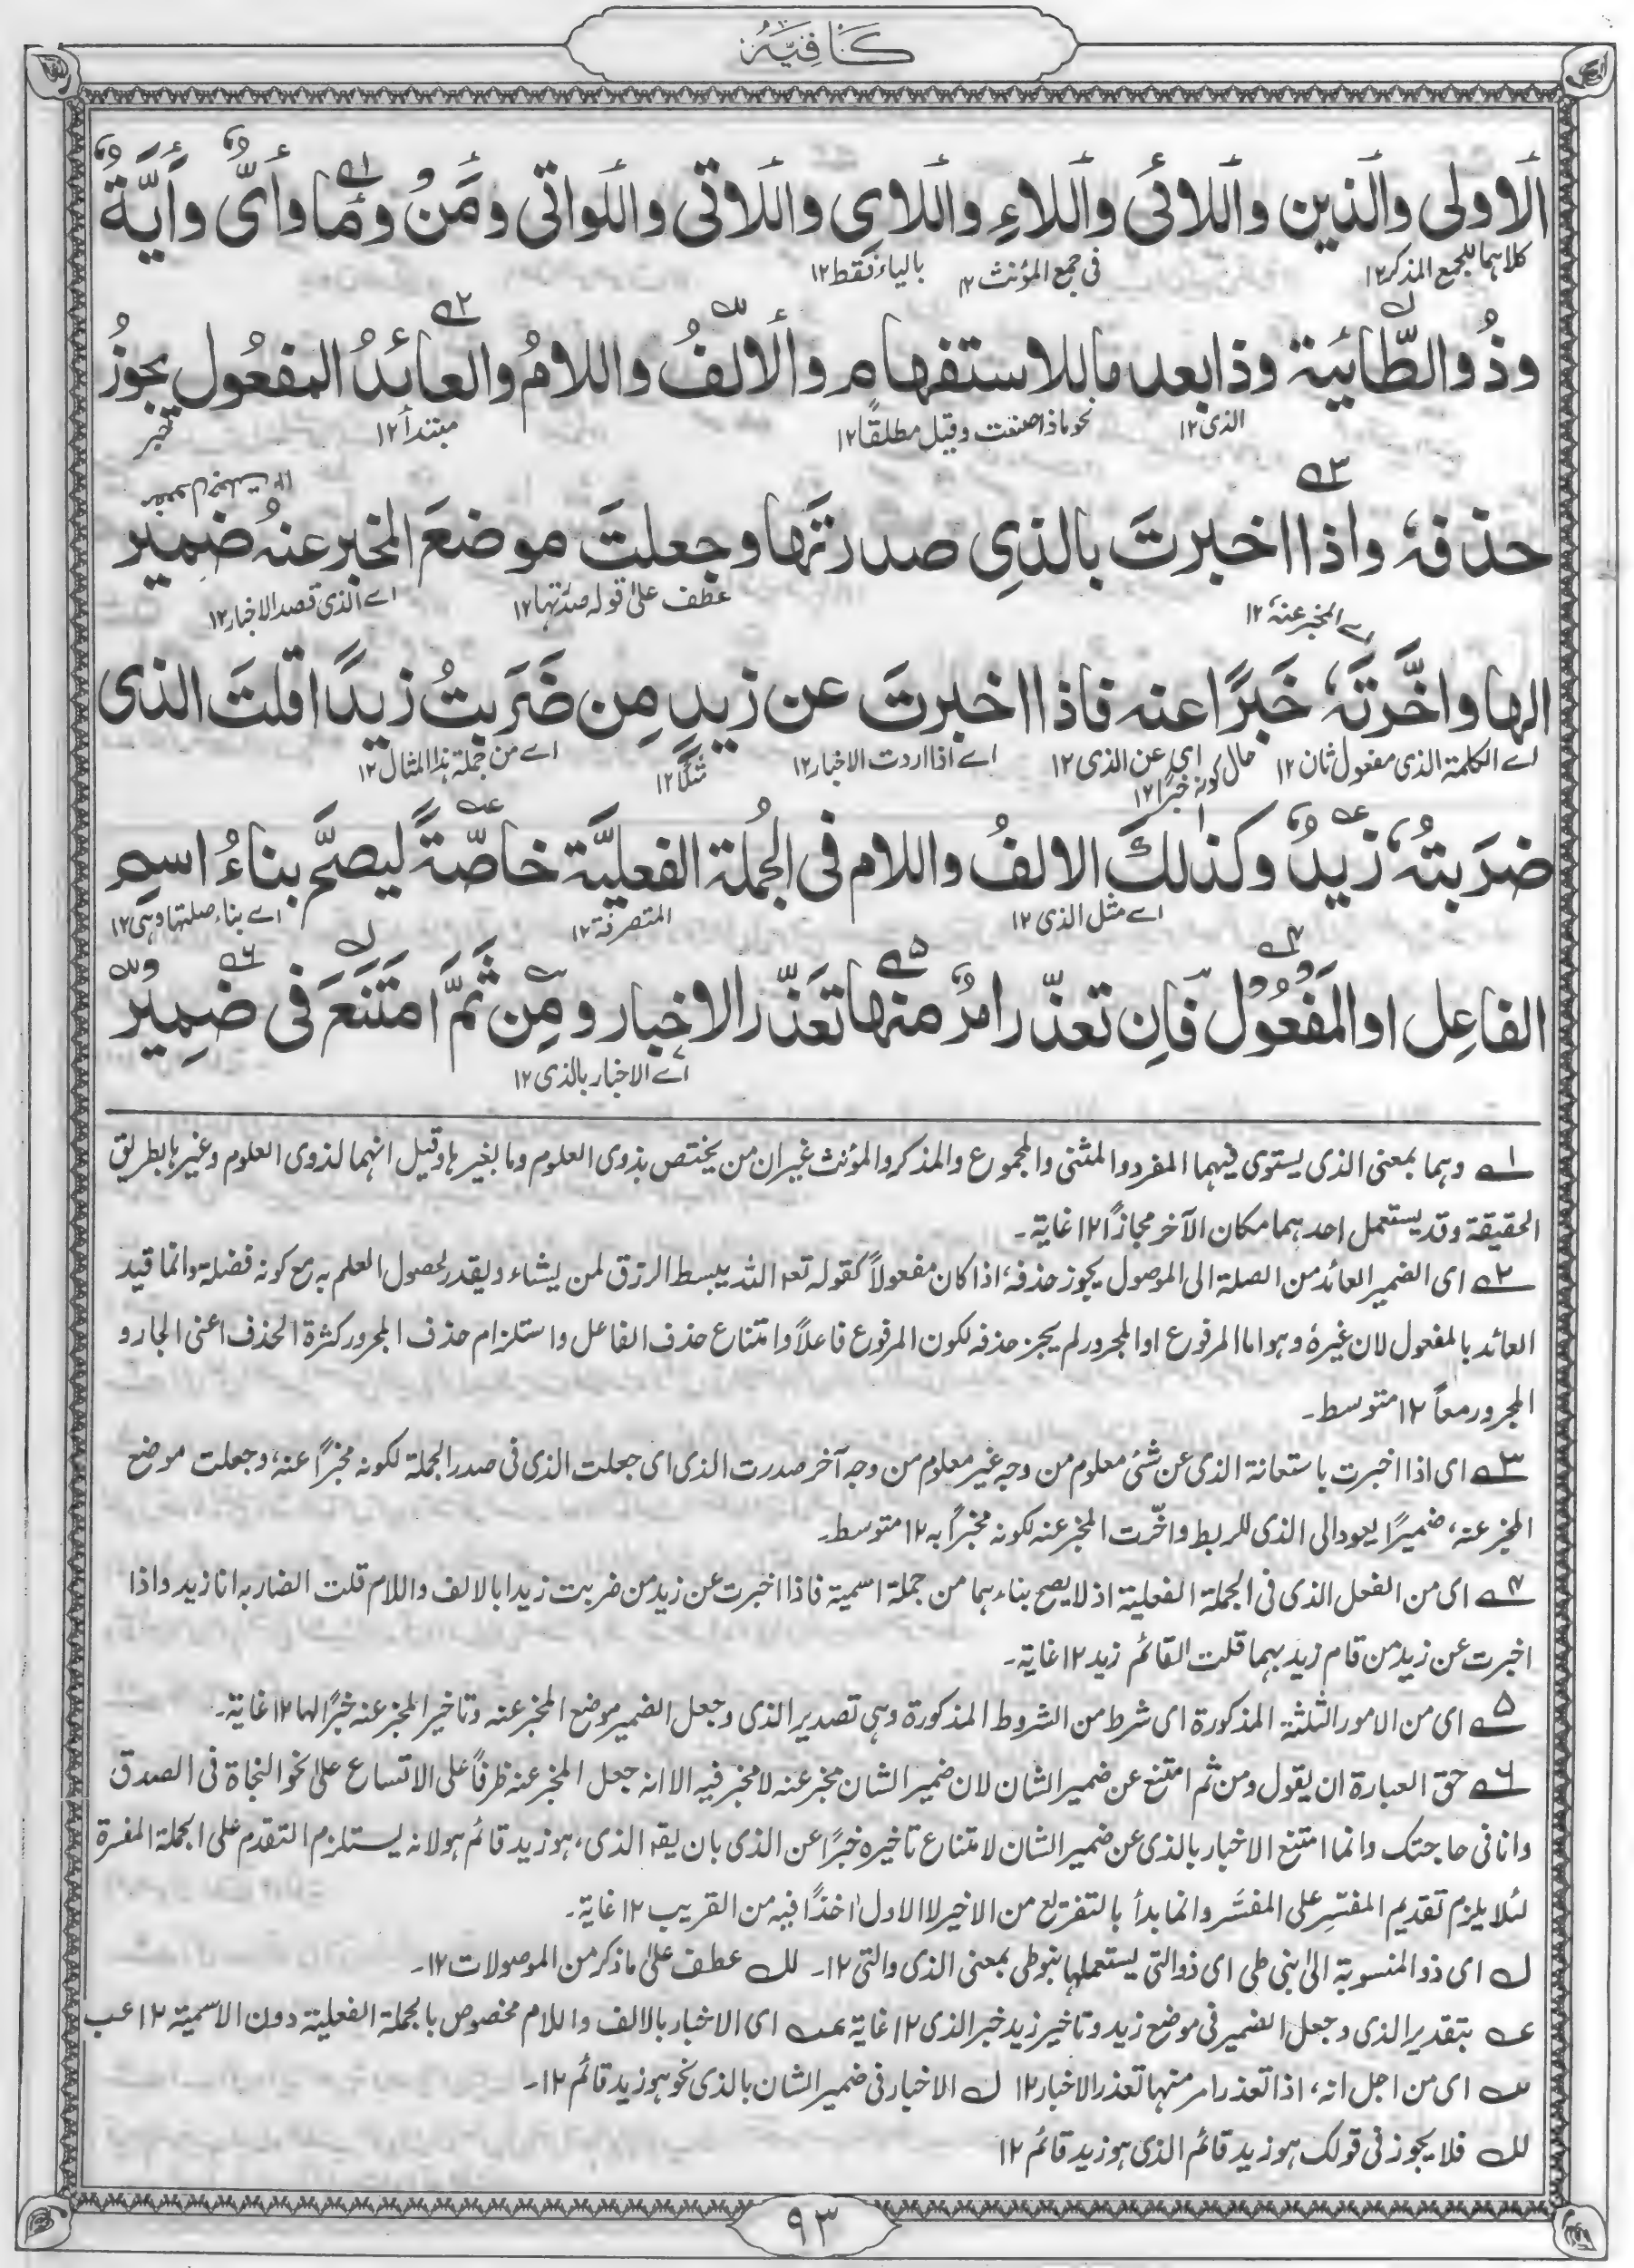 كافيه
اَلاولى والَّذين واَللائى واَللاءِ واَللاىِ واَللاتى واللَواتى ومَنْ ومَا واَىٌّ واَيَّةٌ
كلاهما للجمع المذكر١٢ فى جمع المؤنث ١٢ بالياء فقط١٢
وذُو الطَّائيَة وذا بعد ما للاستفهام واَلالفُ واللامُ والعائدُ المفعُول يجوزُ
الذى١٢ نحو ماذا صنعت وقيل مطلقًا١٢ مبتدأ١٢ خبر
حذفهٗ واذا اخبرتَ بالذىِ صدرتَها وجعلتَ موضعَ المخبر عنهُ ضمير
اے المخبر عنه١٢ عطف على قوله صدرتها١٢ اے الذى قصد الاخبار١٢
الها واخَّرتَهٗ خَبَرًا عنه فاذا اخبرتَ عن زيدٍ مِن ضَرَبتُ زيدًا قلتَ الذى
اے الكلمة الذى مفعول ثان١٢ حال كونه خبرا١٢ اى عن الذى١٢ اے اذا اردت الاخبار١٢ مثلًا١٢ اے من جملة هذا المثال١٢
ضرَبتُهٗ زيدٌ وكذلكَ الالفُ واللام فى الجُملة الفعليَّة خاصّةً ليصحَّ بناءُ اسمِ
اے مثل الذى١٢ المتصرفة١٢ اے بناء صلتها وهى١٢
الفاعِل او المَفُعُوْل فَاِن تعذّر امرٌ منها تعَذّر الاخبار ومِن ثَمَّ امتَنَعَ فى ضمِيرْ
اے الاخبار بالذى١٢
١ے وهما بمعنى الذى يستوى فيهما المفرد والمثنى والمجموع والمذكر والمؤنث غير ان من يختص بذوى العلوم وما بغيرها وقيل انهما لذوى العلوم وغيرها بطريق
الحقيقة وقد يستعمل احدهما مكان الآخر مجازًا١٢غاية۔
٢ے اى الضمير العائد من الصلة الى الموصول يجوز حذفه، اذا كان مفعولاً كقوله تعہ الله يبسط الرزق لمن يشاء ويقدر لحصول العلم به مع كونه فضلة وانما قيد
العائد بالمفعول لان غيرهٗ وهو اما المرفوع او المجرور لم يجز حذفه لكون المرفوع فاعلاً وامتناع حذف الفاعل واستلزام حذف المجرور كثرة الحذف اعنى الجار و
المجرور معاً ١٢متوسط۔
٣ے اى اذا اخبرت باستعانة الذى عن شئ معلوم من وجه غير معلوم من وجه آخر صدرت الذى اى جعلت الذى فى صدر الجملة لكونه مخبرًا عنه، وجعلت موضع
المخبر عنه، ضميرًا يعود الى الذى للربط واخّرت المخبر عنه لكونه مخبراً به ١٢متوسط۔
٤ے اى من الفعل الذى فى الجملة الفعلية اذ لا يصح بناءهما من جملة اسمية فاذا اخبرت عن زيد من ضربت زيدا بالالف واللام قلت الضاربه انا زيد واذا
اخبرت عن زيد من قام زيد بهما قلت القائم زيد١٢غاية۔
٥ے اى من الامور الثلثة المذكورة اى شرط من الشروط المذكورة وهى تصدير الذى وجعل الضمير موضع المخبر عنه وتاخير المخبر عنه خبرًا لها١٢غاية۔
٦ے حق العبارة ان يقول ومن ثم امتنع عن ضمير الشان لان ضمير الشان مخبر عنه لا مخبر فيه الا انه جعل المخبر عنه ظرفاً على الاتساع على نحو النجاة فى الصدق
وانا فى حاجتك وانما امتنع الاخبار بالذى عن ضمير الشان لامتناع تاخيره خبرًا عن الذى بان يقہ الذى، هو زيد قائم هو لانه يستلزم التقدم على الجملة المفسرة
لئلا يلزم تقديم المفسِّر على المفسَّر وانما بدأ بالتفريع من الاخير لا الاول اخذًا فيه من القريب ١٢غاية۔
لـ اى ذو المنسوبة الى بنى طى اى ذو التى يستعملها بنو طى بمعنى الذى والتى١٢۔ للـ عطف على ما ذكر من الموصولات١٢۔
عـ بتقدير الذى وجعل الضمير فى موضع زيد وتاخير زيد خبر الذى١٢غاية عـہ اى الاخبار بالالف واللام مخصوص بالجملة الفعلية دون الاسمية١٢عب
سـ اى من اجل انه، اذا تعذر امر منها تعذر الاخبار١٢ لـ الاخبار فى ضمير الشان بالذى نحو هو زيد قائم١٢۔
للـ فلا يجوز فى قولك هو زيد قائم الذى هو زيد قائم١٢
٩٣